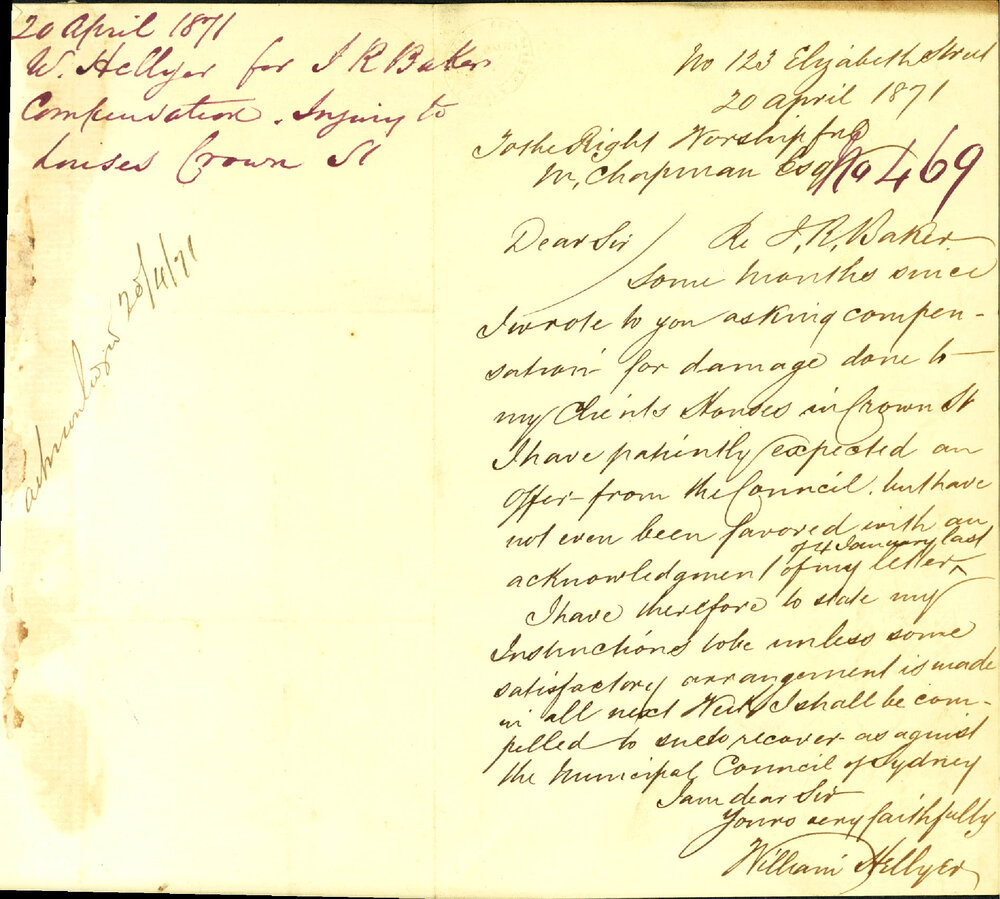 20 April 1871
W. Hellyer for J R Baker
Compensation. Injury to
houses Crown St
acknowledged 20/4/71
No 123 Elizabeth Street
20 April 1871
To the Right Worshipful
M, Chapman Esq
No 469
Dear Sir / Re J, R, Baker
Some months since
I wrote to you asking compen-
sation for damage done to
my Clients Houses in Crown St
I have patiently expected an
offer from the Council, but have
not even been favored with an
of 4 January last
acknowledgment of my letter ^
I have therefore to state my
Instructions to be unless some
satisfactory arrangement is made
in all next Week I shall be com-
pelled to sue to recover as against
the Municipal Council of Sydney
I am dear Sir
Yours very faithfully
William Hellyer